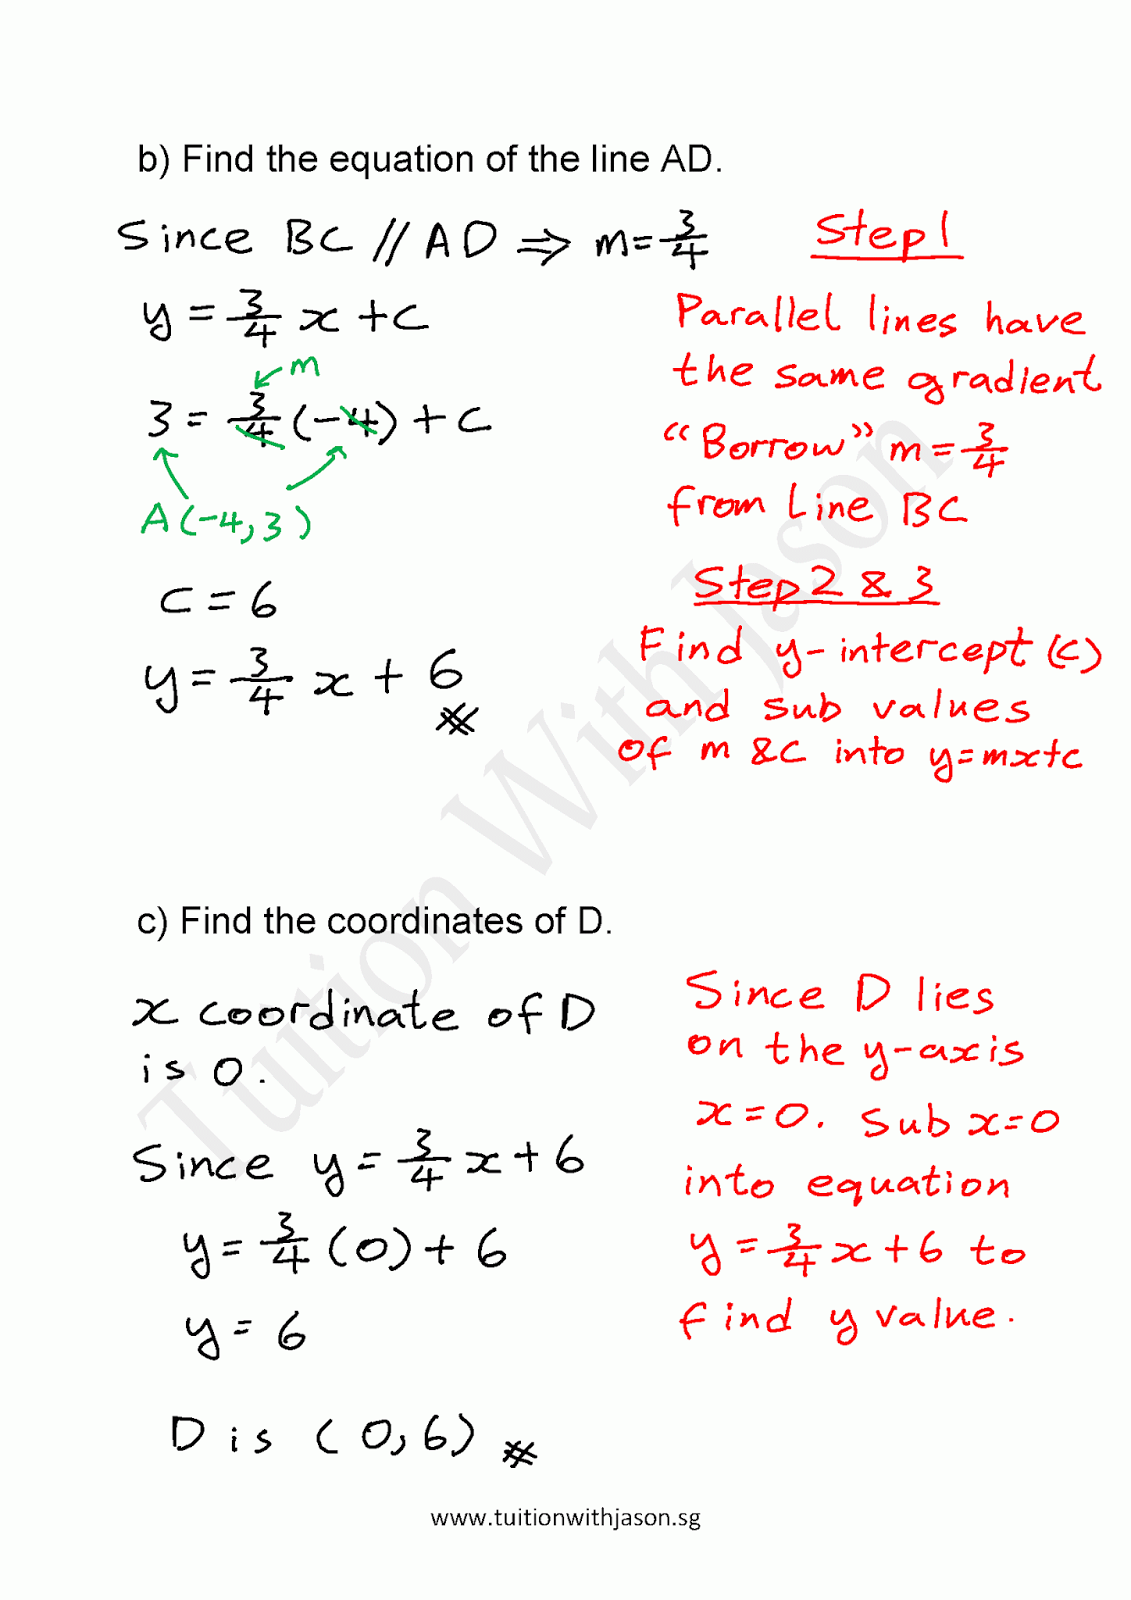 b) Find the equation of the line AD.
Since BC // AD ⇒ m = 3/4
y = 3/4 x + c
m
3 = 3/4 (-4) + c
A(-4, 3)
c = 6
y = 3/4 x + 6
Step 1
Parallel lines have
the same gradient
“Borrow” m = 3/4
from Line BC
Step 2 & 3
Find y-intercept (c)
and sub values
of m & c into y=mx+c
c) Find the coordinates of D.
x coordinate of D
is 0.
Since y = 3/4 x + 6
y = 3/4 (0) + 6
y = 6
D is (0, 6)
Since D lies
on the y-axis
x = 0. Sub x=0
into equation
y = 3/4 x + 6 to
find y value.
Tuition With Jason
www.tuitionwithjason.sg